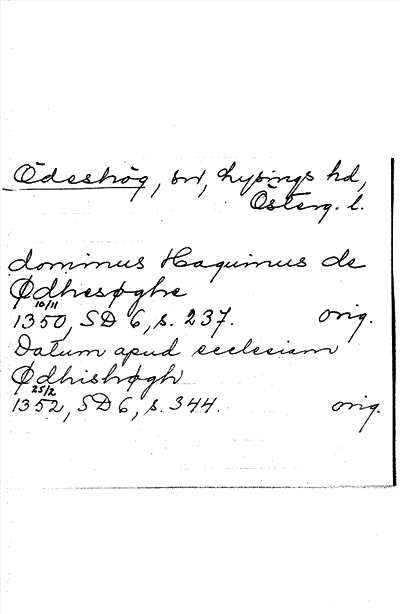 Ödeshög, sn, Lysings hd,
Österg. l.
dominus Haquinus de
Ødhesøghe
10/11
1350, SD 6, s. 237. orig.
Datum apud ecclesiam
Ødhishøgh
25/2
1352, SD 6, s. 344. orig.